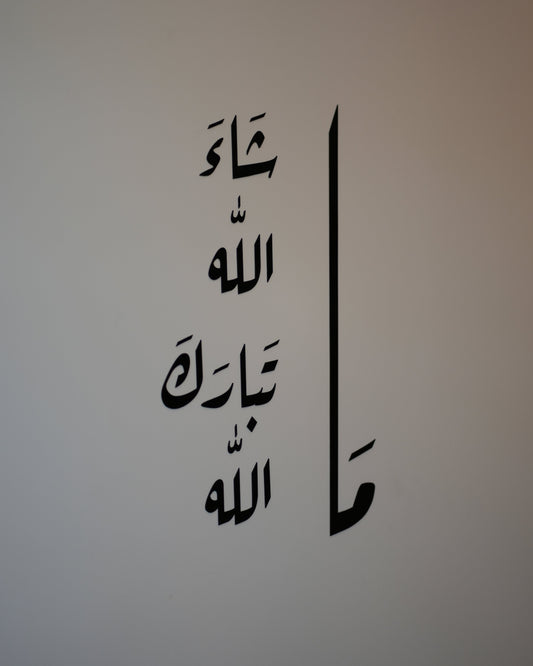 مَا
شَاءَ
اللّٰه
تَبارَكَ
اللّٰه